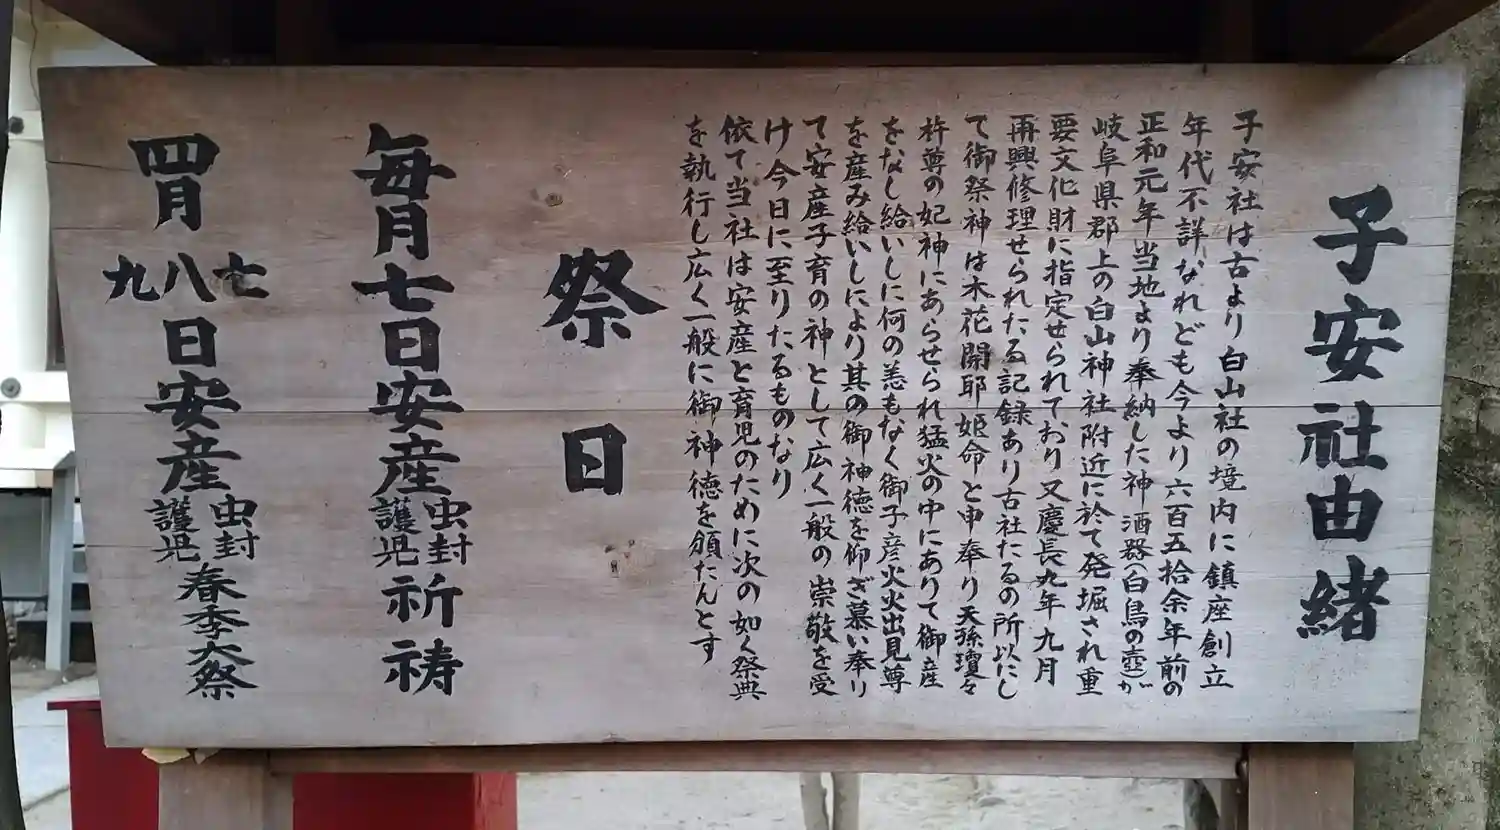 子安社由緒
子安社は古より白山社の境内に鎮座創立
年代不詳なれども今より六百五拾余年前の
正和元年当地より奉納した神酒器(白鳥の壺)が
岐阜県郡上の白山神社附近に於て発堀され重
要文化財に指定せられており又慶長九年九月
再興修理せられたる記録あり古社たるの所以にし
て御祭神は木花開耶姫命と申奉り天孫瓊々
杵尊の妃神にあらせられ猛火の中にありて御産
をなし給いしに何の恙もなく御子彦火火出見尊
を産み給いしにより其の御神徳を仰ぎ慕い奉り
て安産子育の神として広く一般の崇敬を受
け今日に至りたるものなり
依て当社は安産と育児のために次の如く祭典
を執行し広く一般に御神徳を頒たんとす
祭日
毎月七日安産虫封護児祈祷
四月七八九日安産虫封護児春季大祭